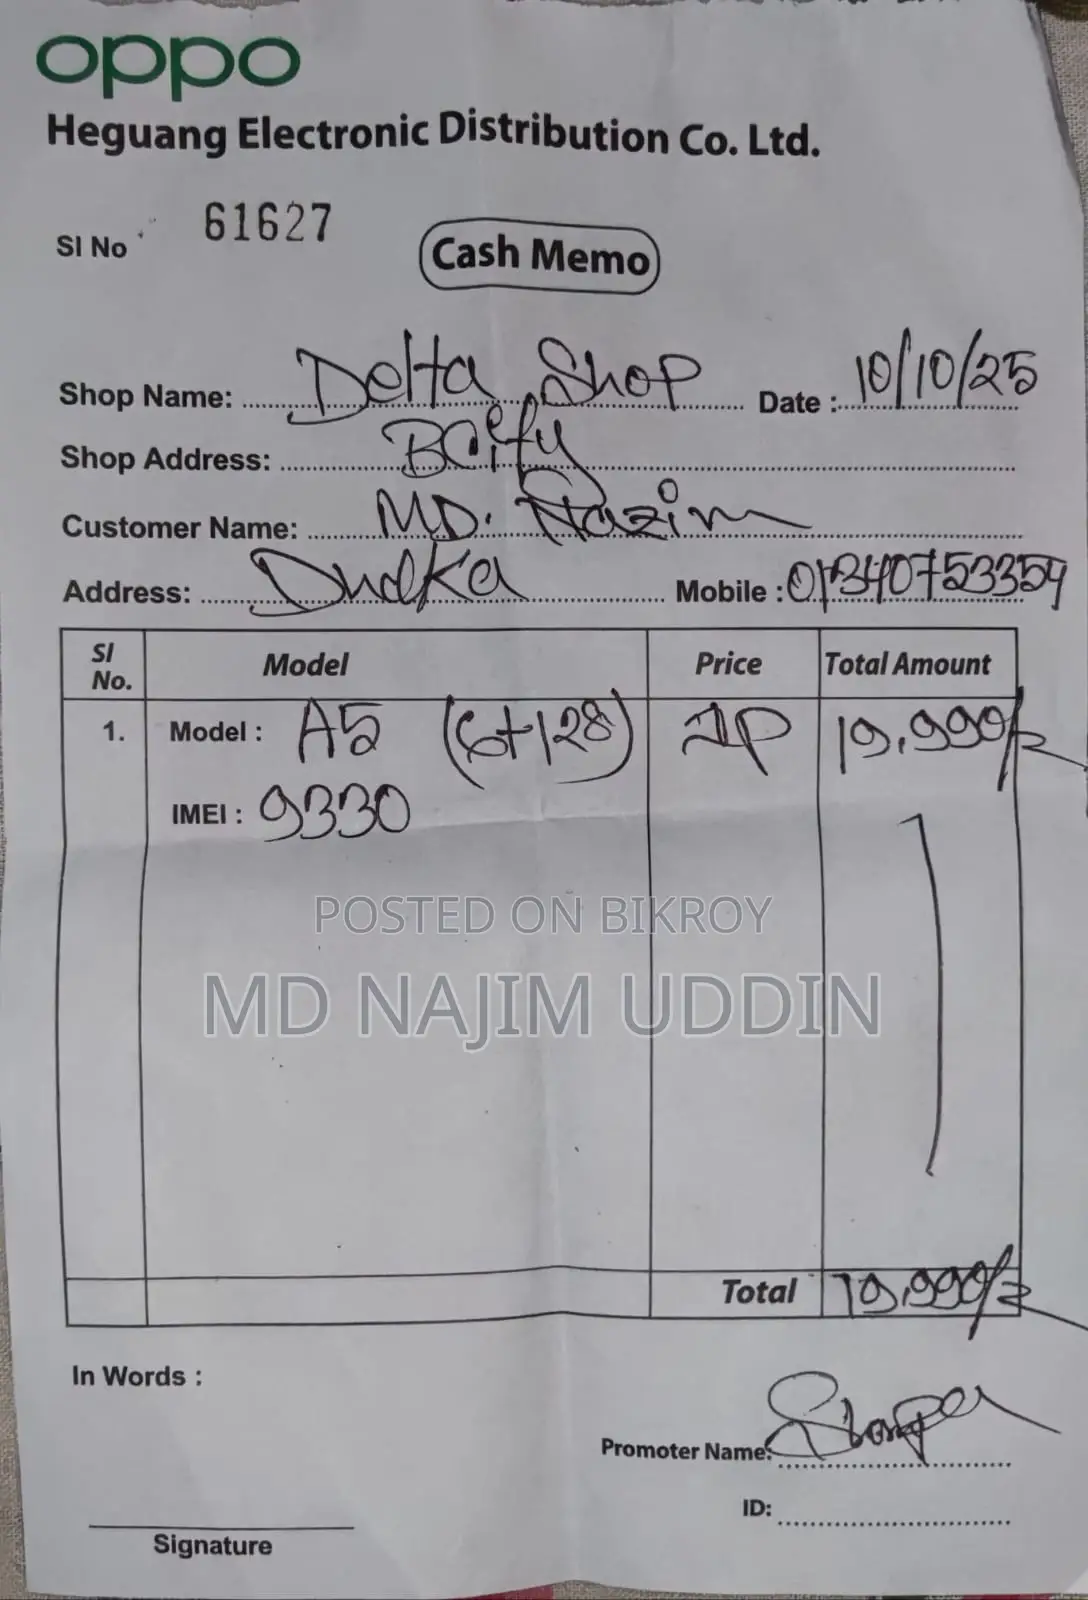 oppo
Heguang Electronic Distribution Co. Ltd.
Sl No 61627
Cash Memo
Shop Name: Delta Shop Date : 10/10/25
Shop Address: BCity
Customer Name: MD. Nazim
Address: Dhaka Mobile : 01340753359
Sl No. Model Price Total Amount
1. Model : A5 (6+128) 1P 19,990/=
IMEI : 9330
POSTED ON BIKROY
MD NAJIM UDDIN
Total 19,990/=
In Words :
Promoter Name:
ID:
Signature